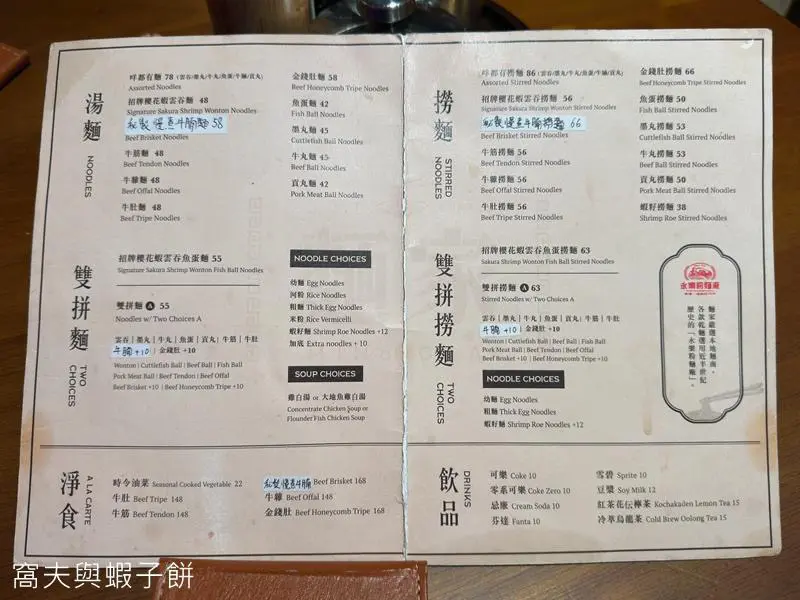 湯麵
NOODLES
咩都有麵 78 (雲吞/墨丸/牛丸/魚蛋/牛腩/貢丸)
Assorted Noodles
招牌櫻花蝦雲吞麵 48
Signature Sakura Shrimp Wonton Noodles
私製慢煮牛腩麵 58
Beef Brisket Noodles
牛筋麵 48
Beef Tendon Noodles
牛雜麵 48
Beef Offal Noodles
牛肚麵 48
Beef Tripe Noodles
金錢肚麵 58
Beef Honeycomb Tripe Noodles
魚蛋麵 42
Fish Ball Noodles
墨丸麵 45
Cuttlefish Ball Noodles
牛丸麵 45
Beef Ball Noodles
貢丸麵 42
Pork Meat Ball Noodles
雙拼麵
TWO CHOICES
招牌櫻花蝦雲吞魚蛋麵 55
Signature Sakura Shrimp Wonton Fish Ball Noodles
雙拼麵 A 55
Noodles w/ Two Choices A
雲吞 | 墨丸 | 牛丸 | 魚蛋 | 貢丸 | 牛肚 | 牛筋
牛腩 +10 | 金錢肚 +10
Wonton | Cuttlefish Ball | Beef Ball | Fish Ball
Pork Meat Ball | Beef Tendon | Beef Offal
Beef Brisket +10 | Beef Honeycomb Tripe +10
NOODLE CHOICES
幼麵 Egg Noodles
河粉 Rice Noodles
粗麵 Thick Egg Noodles
米粉 Rice Vermicelli
蝦籽麵 Shrimp Roe Noodles +12
加底 Extra noodles + 10
SOUP CHOICES
雞白湯 or 大地魚雞白湯
Concentrate Chicken Soup or
Flounder Fish Chicken Soup
淨食
A LA CARTE
時令油菜 Seasonal Cooked Vegetable 22
牛肚 Beef Tripe 148
牛筋 Beef Tendon 148
私製慢煮牛腩 Beef Brisket 168
牛雜 Beef Offal 148
金錢肚 Beef Honeycomb Tripe 168
撈麵
STIRRED NOODLES
咩都有撈麵 86 (雲吞/墨丸/牛丸/魚蛋/牛腩/貢丸)
Assorted Stirred Noodles
招牌櫻花蝦雲吞撈麵 56
Signature Sakura Shrimp Wonton Stirred Noodles
私製慢煮牛腩撈麵 66
Beef Brisket Stirred Noodles
牛筋撈麵 56
Beef Tendon Stirred Noodles
牛雜撈麵 56
Beef Offal Stirred Noodles
牛肚撈麵 56
Beef Tripe Stirred Noodles
金錢肚撈麵 66
Beef Honeycomb Tripe Stirred Noodles
魚蛋撈麵 50
Fish Ball Stirred Noodles
墨丸撈麵 53
Cuttlefish Ball Stirred Noodles
牛丸撈麵 53
Beef Ball Stirred Noodles
貢丸撈麵 50
Pork Meat Ball Stirred Noodles
蝦籽撈麵 38
Shrimp Roe Stirred Noodles
雙拼撈麵
TWO CHOICES
招牌櫻花蝦雲吞魚蛋撈麵 63
Sakura Shrimp Wonton Fish Ball Stirred Noodles
雙拼撈麵 A 63
Stirred Noodles w/ Two Choices A
雲吞 | 墨丸 | 牛丸 | 魚蛋 | 貢丸 | 牛筋 | 牛肚
牛腩 +10 | 金錢肚 +10
Wonton | Cuttlefish Ball | Beef Ball | Fish Ball
Pork Meat Ball | Beef Tendon | Beef Offal
Beef Brisket +10 | Beef Honeycomb Tripe +10
NOODLE CHOICES
幼麵 Egg Noodles
粗麵 Thick Egg Noodles
蝦籽麵 Shrimp Roe Noodles +12
永樂粉麵廠
麵家嚴選本地麵商，
各款乾麵選用近半世紀
歷史的「永樂粉麵廠」。
飲品
DRINKS
可樂 Coke 10
零系可樂 Coke Zero 10
忌廉 Cream Soda 10
芬達 Fanta 10
雪碧 Sprite 10
豆漿 Soy Milk 12
紅茶花伝檸茶 Kochakaden Lemon Tea 15
冷萃烏龍茶 Cold Brew Oolong Tea 15
窩夫與蝦子餅